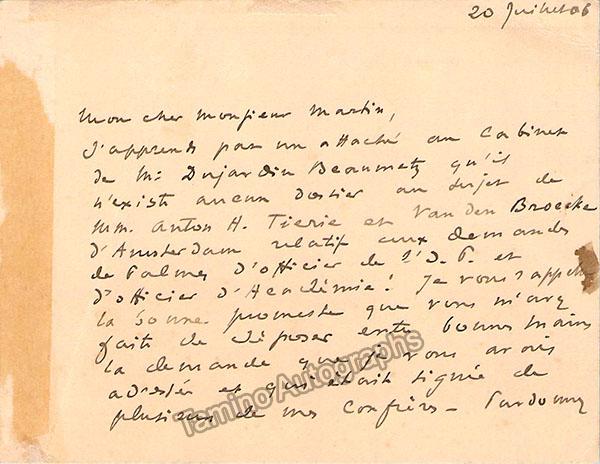 20 Juillet 06
Mon cher Monsieur Martin,
J'apprends par un attaché au Cabinet
de Mr Dujardin Beaumetz qu'il
n'existe aucun dossier au sujet de
MM. Anton H. Tierie et Van den Broecke
d'Amsterdam relatif aux demandes
de Palmes d'officier de l'I.P. et
d'officier d'Académie! Je vous rappelle
la bonne promesse que vous m'avez
faite de déposer entre bonnes mains
la demande que je vous avais
adressée et qui était signée de
plusieurs de mes confrères — Pardonnez
Tamino Autographs